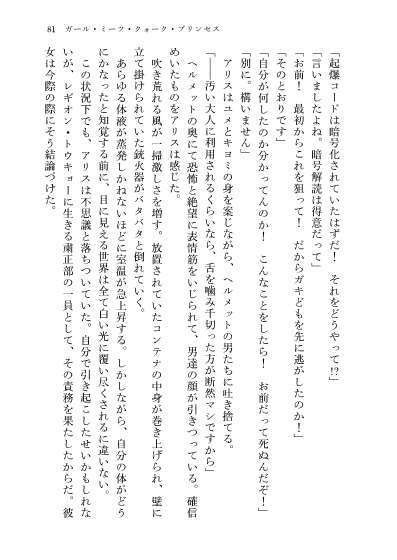 81　ガール・ミーツ・クォーク・プリンセス
「起爆コードは暗号化されていたはずだ！　それをどうやって!?」
「言いましたよね。暗号解読は得意だって」
「お前！　最初からこれを狙って！　だからガキどもを先に逃がしたのか！」
「そのとおりです」
「自分が何したのか分かってんのか！　こんなことをしたら！　お前だって死ぬんだぞ！」
「別に。構いません」
　アリスはユメとキヨミの身を案じながら、ヘルメットの男たちに吐き捨てる。
「――汚い大人に利用されるくらいなら、舌を噛み千切った方が断然マシですから」
　ヘルメットの奥にて恐怖と絶望に表情筋をいじられて、男達の顔が引きつっている。確信
めいたものをアリスは感じた。
　吹き荒れる風が一掃激しさを増す。放置されていたコンテナの中身が巻き上げられ、壁に
立て掛けられていた銃火器がバタバタと倒れていく。
　あらゆる体液が蒸発しかねないほどに室温が急上昇する。しかしながら、自分の体がどう
にかなったと知覚する前に、目に見える世界は全て白い光に覆い尽くされるに違いない。
　この状況下でも、アリスは不思議と落ちついていた。自分で引き起こしたせいかもしれな
いが、レギオン・トウキョーに生きる粛正部の一員として、その責務を果たしたからだ。彼
女は今際の際にそう結論づけた。